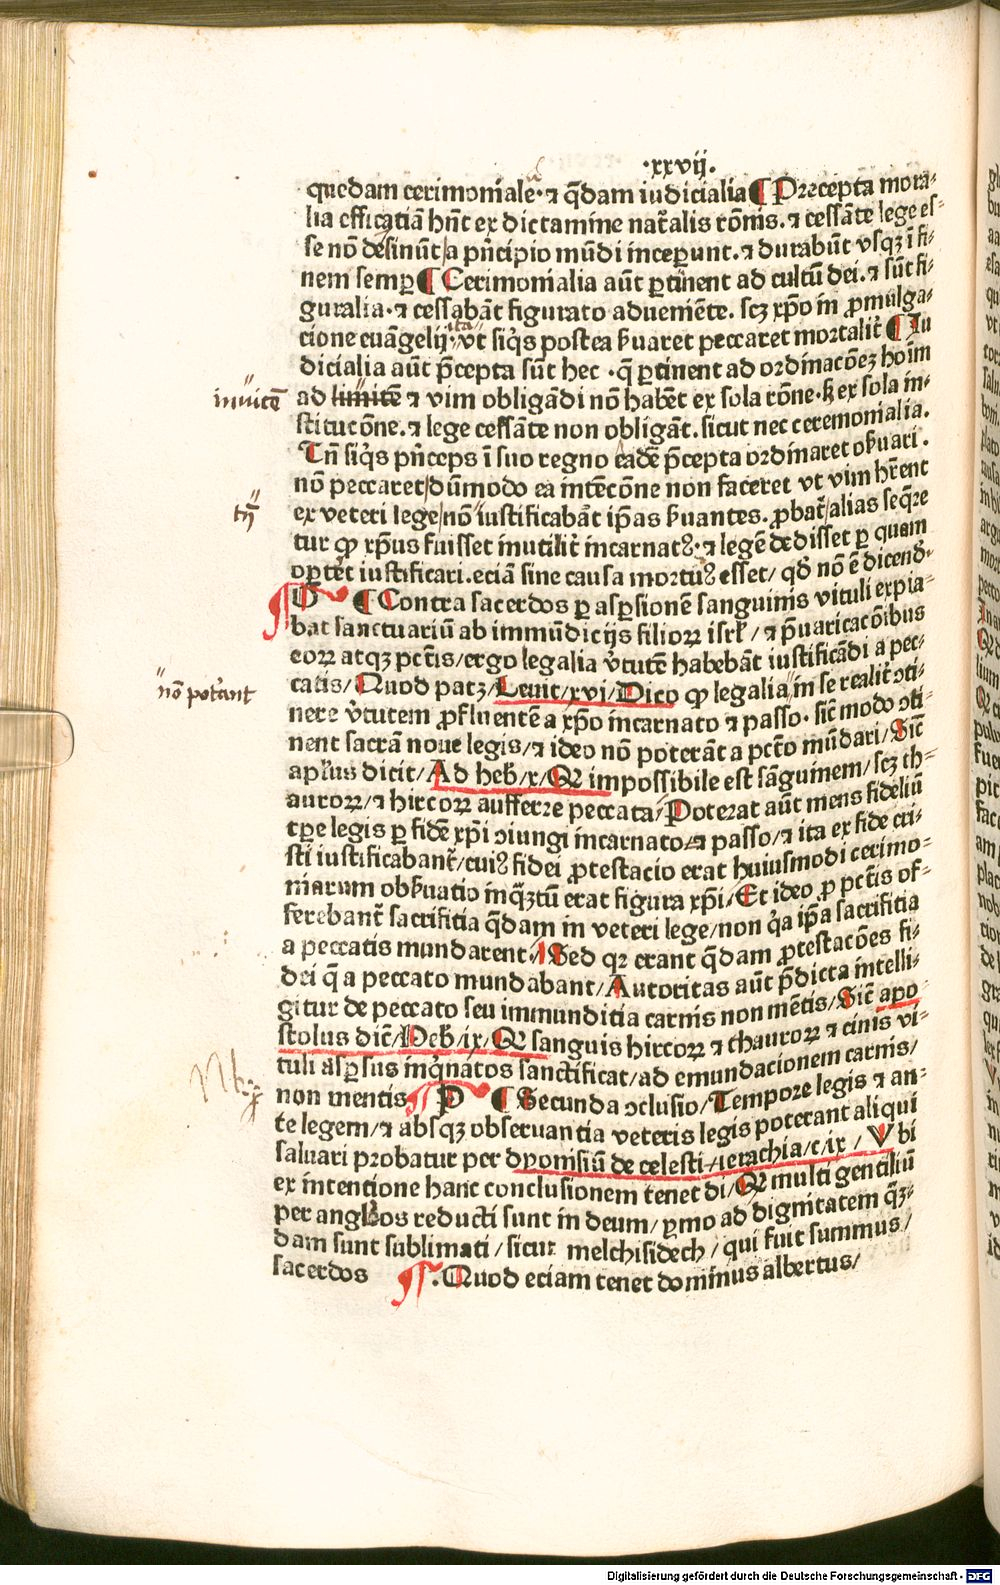 ·xxvij.
quedam cerimoniale· ⁊ q̄dam iudicialia ¶ Precepta mora-
lia efficatiā hn̄t ex dictamine natr̄alis rōnis. ⁊ cessāte lege es-
se nō desinūt/a pn̄cipio mūdi inceperunt. ⁊ durabūt vsqꝫ ī fi-
nem semꝑ ¶ Cerimonialia aūt ꝑtinent ad cultū dei. ⁊ sūt fi-
guralia· ⁊ cessabāt figurato adueniēte. scꝫ xp̄o in ꝓmulga-
cione euāgelij· ita vt siq̄s postea ẜuaret peccaret mortalit̄ ¶ Iu
dicialia aūt p̄cepta sūt hec · q̄ ꝑtinent ad ordinacōeꝫ hoīm
inuicē
ad limitē ⁊ vim obligādi nō habēt ex sola rōne· ẜꝫ ex sola in-
stitutōne. ⁊ lege cessāte non obligāt. sicut nec ceremonialia.
Tn̄ siq̄s pn̄ceps ī suo regno eadē p̄cepta ordinaret obẜuari .
nō peccaret/dūmodo ea intēcōne non faceret vt vim hr̄ent
tn̄
ex veteri lege/nō iustificabāt ip̄as ẜuantes. ꝓbat̄/alias seq̄re
tur ꝙ xp̄us fuisset inutilit̄ incarnatꝰ· ⁊ legē dedisset ꝑ quam
oꝑtet̄ iustificari. eciā sine causa mortuꝰ esset/ qḋ nō ē dicendū·
¶ D ¶ Contra sacerdos ꝑ asꝑsionē sanguinis vituli expia-
bat sanctuariū ab immūdicijs filioꝝ isrl̄ / ⁊ p̄uaricacōibus
eoꝝ atqꝫ pctīs/ergo legalia v̄tutē habebāt iustificādi a pec-
nō poterant
catis/ Quod patꝫ/Leuit/xvi/Dico ꝙ legalia/in se realit̄ ꝯti-
nere v̄tutem ꝓfluentē a xp̄o incarnato ⁊ passo· sic̄ modo ꝯti-
nent sacrā noue legis/⁊ ideo nō poterāt a pctō mūdari/Sic̄
ap̄lus dicit/Ad heb̄/x/Qꝛ impossibile est sāguinem/scꝫ th-
auroꝝ/⁊ hircoꝝ aufferre peccata/Poterat aūt mens fideliū
tꝑe legis ꝑ fidē xp̄i ꝯiungi incarnato/⁊ passo/⁊ ita ex fide cri-
sti iustificabant̄/cuiꝰ fidei ꝓtestacio erat huiusmodi cerimo-
niarum obẜuatio inq̄ꝫtū erat figura xp̄i/Et ideo ꝓ pctīs of-
ferebant̄ sacrificia q̄dam in veteri lege/non q̄a ip̄a sacrificia
a peccatis mundarent·/Sed qꝛ erant q̄dam ꝓtestacōes fi-
dei q̄ a peccato mundabant/Autoritas aūt p̄dicta intelli-
gitur de peccato seu immunditia carnis non mētis/Sic̄ apo
stolus dic̄t/Heb̄/ix/Qꝛ sanguis hircoꝝ ⁊ thauroꝝ ⁊ cinis vi-
tuli asꝑsus inq̄natos sanctificat/ad emundacionem carnis/
non mentis ¶ P ¶ Secunda ꝯclusio/Tempore legis ⁊ an-
te legem/⁊ absqꝫ obseruantia veteris legis poterant aliqui
saluari probatur per dyonisiū de celesti ierachia/c/ix/ Vbi
ex intentione hanc conclusionem tenet di/Qꝛ multi gentiliū
per angelos reducti sunt in deum/ ymo ad dignitatem q̄ꝫ-
dam sunt sublimati / sicut melchisidech / qui fuit summus /
sacerdos ¶. Quod eciam tenet dominus albertus/
Digitalisierung gefördert durch die Deutsche Forschungsgemeinschaft - DFG